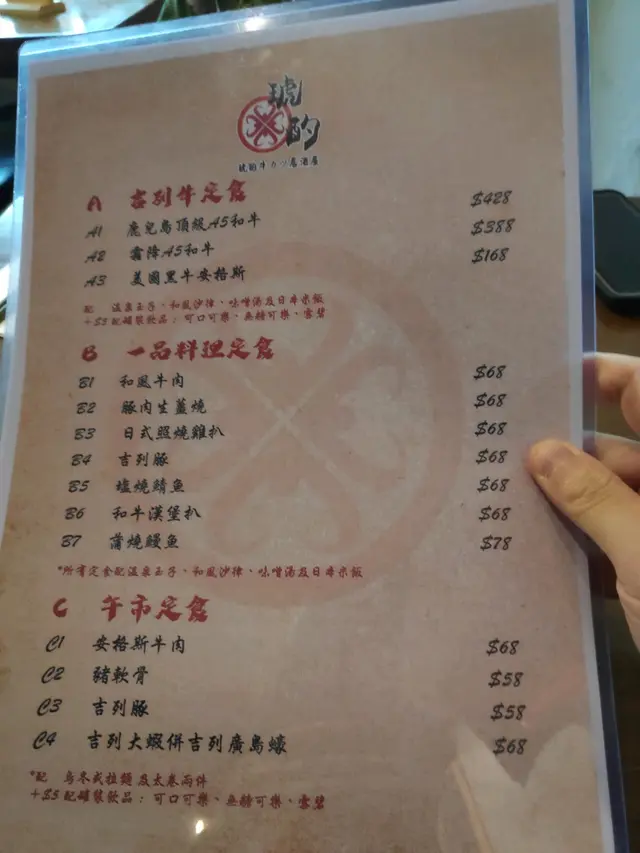 琥酌
琥酌牛カツ居酒屋
A 吉列牛定食
A1 鹿兒島頂級A5和牛 $428
A2 霜降A5和牛 $388
A3 美國黑牛安格斯 $168
配 溫泉玉子、和風沙律、味噌湯及日本米飯
+$5 配罐裝飲品：可口可樂、無糖可樂、雪碧
B 一品料理定食
B1 和風牛肉 $68
B2 豚肉生薑燒 $68
B3 日式照燒雞扒 $68
B4 吉列豚 $68
B5 塩燒鯖魚 $68
B6 和牛漢堡扒 $68
B7 蒲燒鰻魚 $78
*所有定食配溫泉玉子、和風沙律、味噌湯及日本米飯
C 午市定食
C1 安格斯牛肉 $68
C2 豬軟骨 $58
C3 吉列豚 $58
C4 吉列大蝦併吉列廣島蠔 $68
*配 烏冬或拉麵及太卷兩件
+$5 配罐裝飲品：可口可樂、無糖可樂、雪碧